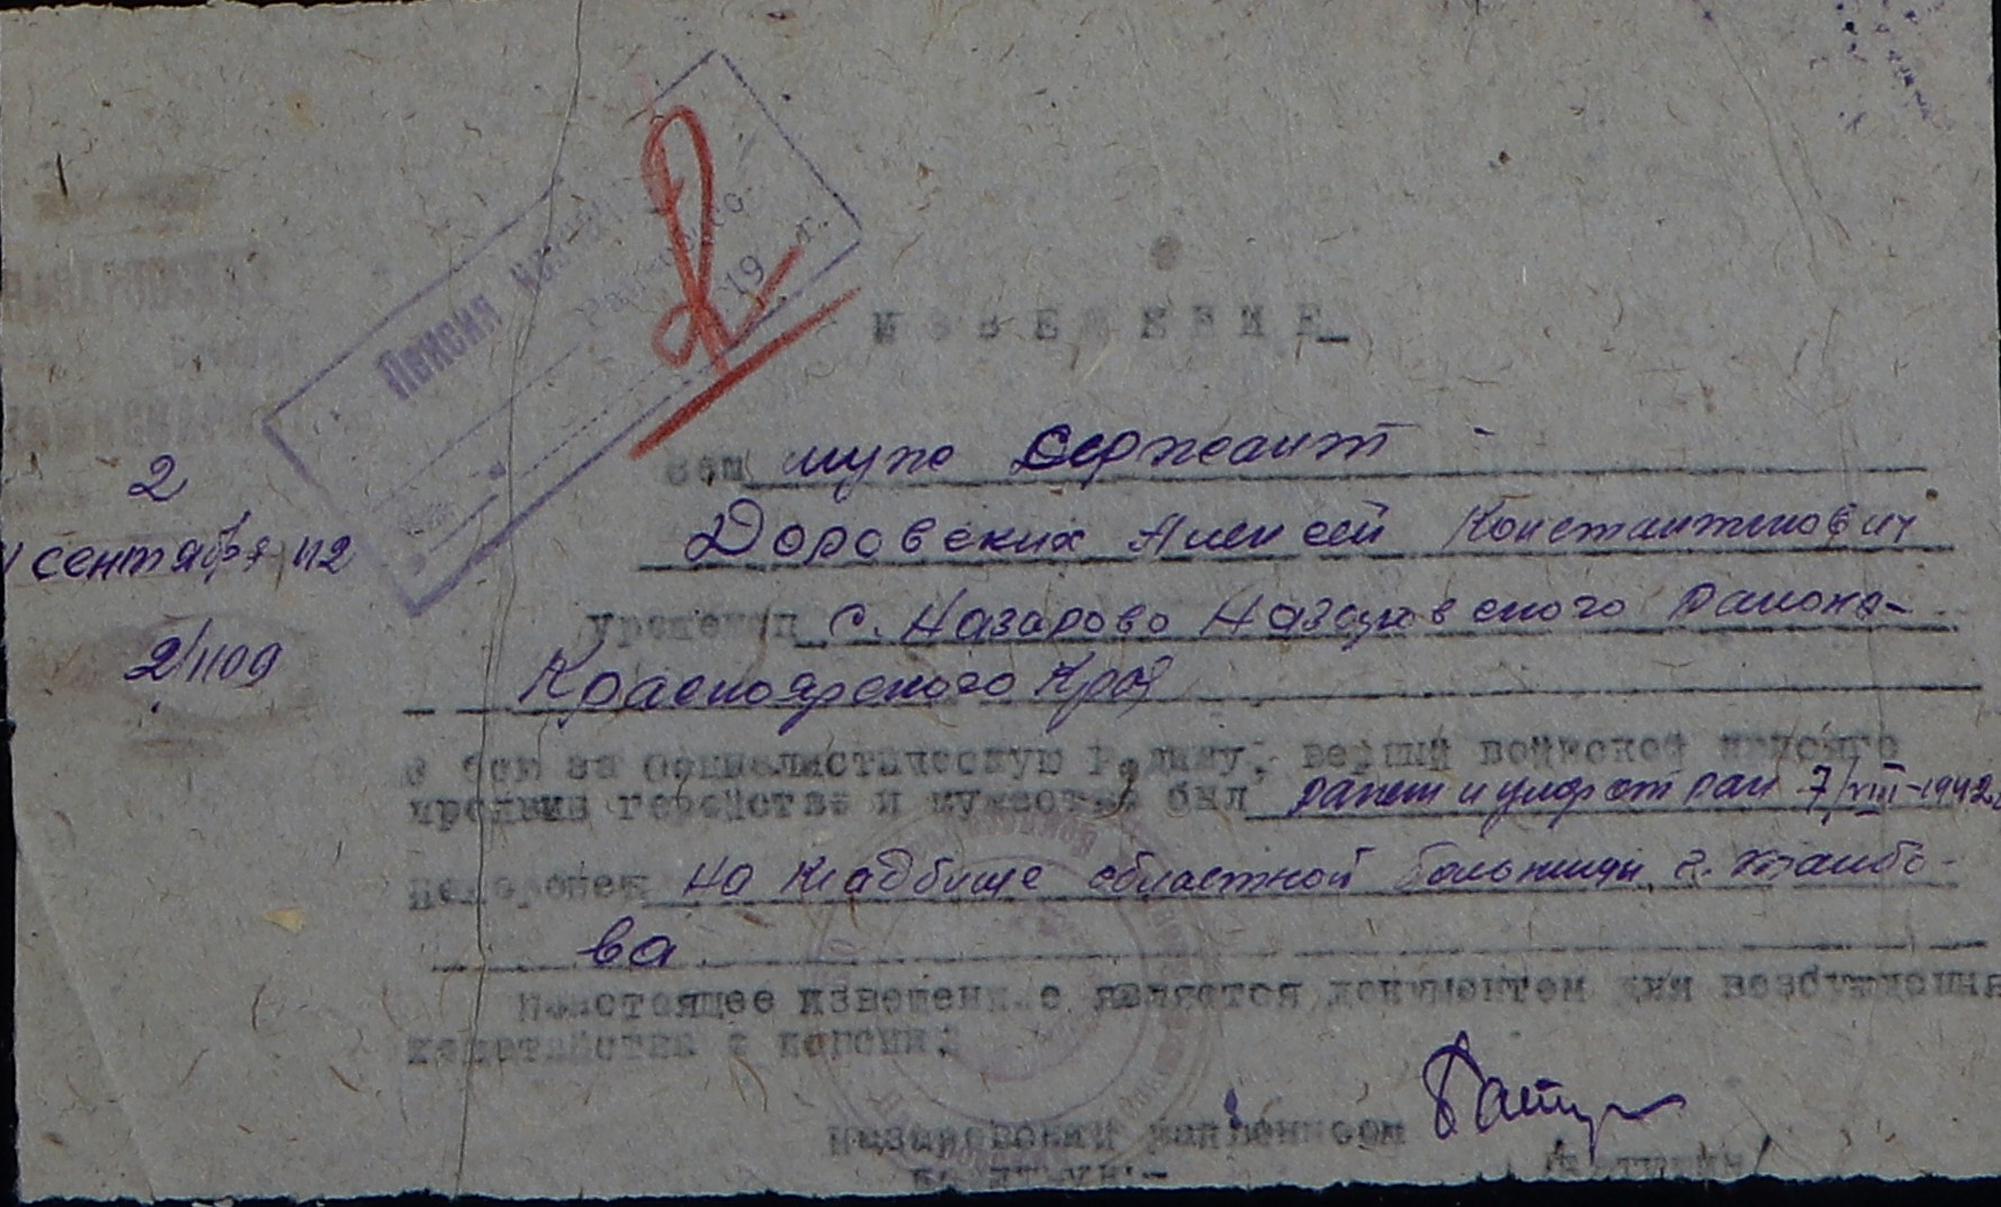 Пенсия
19 г.
ИЗВЕЩЕНИЕ
Ваш муж сержант
2
Доровских Алексей Константинович
сентября 42
уроженец с. Назарово Назаровского района
2/1109
Красноярского Края
в бою за социалистическую Родину, верный воинской присяге
проявив геройство и мужество был ранен и умер от ран 7/VIII-1942г
похоронен на кладбище областной больницы г. Тамбо-
ва
Настоящее извещение является документом для возбуждения
ходатайства о пенсии.
Назаровский райвоенком